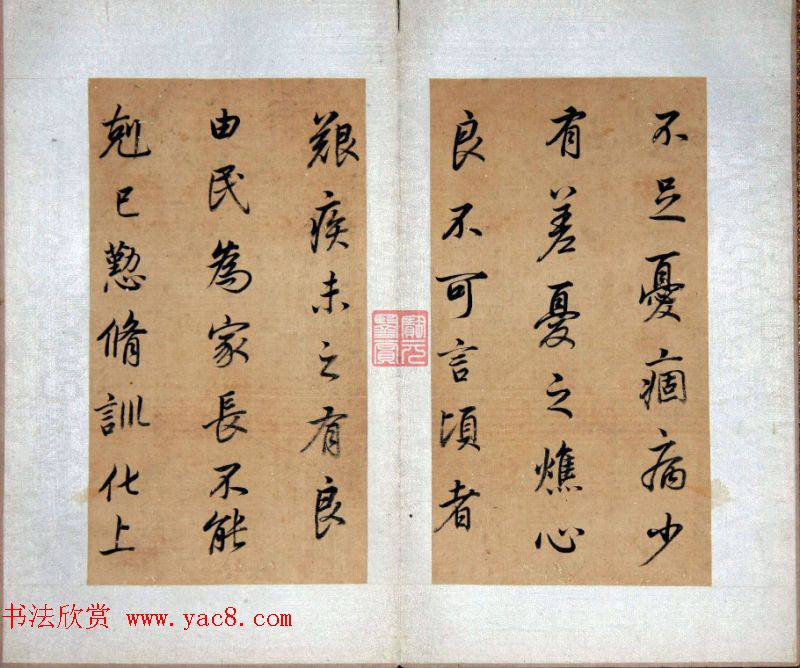 不足憂痼病少
有差憂之燋心
良不可言頃者
艱疾未之有良
由民為家長不能
剋己懃脩訓化上
元
鑒賞
书法欣赏 www.yac8.com